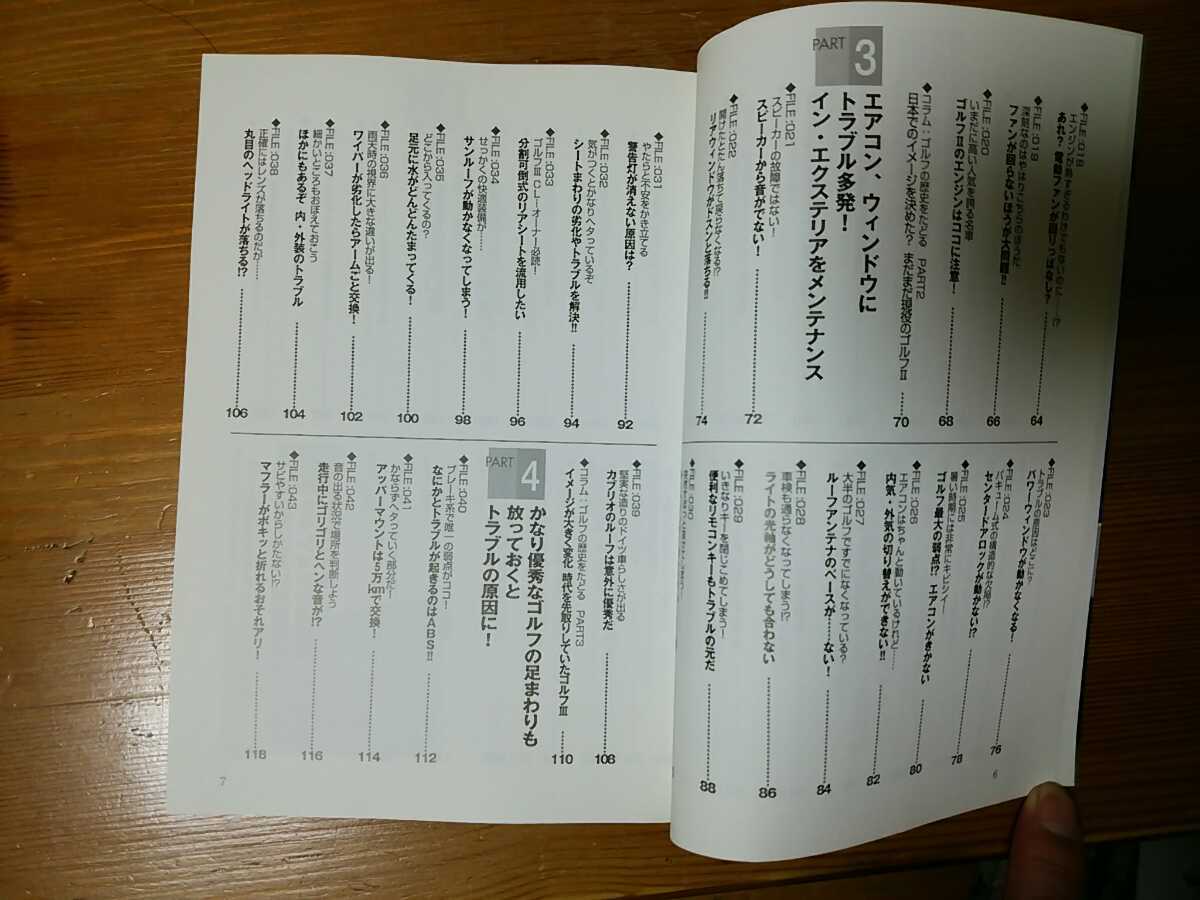 ◆FILE:018
エンジンが熱すぎるわけでもないのに……!?
あれ? 電動ファンが回りっぱなし? 64
◆FILE:019
深刻なのはやはりこちらのほうだ
ファンが回らないほうが大問題!! 66
◆FILE:020
いまだに高い人気を誇る名車
ゴルフⅡのエンジンはココに注意! 68
◆コラム:ゴルフの歴史をたどる PART2
日本でのイメージを決めた? まだまだ現役のゴルフⅡ 70
PART 3
エアコン、ウィンドウに
トラブル多発!
イン・エクステリアをメンテナンス
◆FILE:021
スピーカーの故障ではない!
スピーカーから音がでない! 72
◆FILE:022
開けたとたん落ちて戻らなくなる!?
リアウィンドウがドスンと落ちる!! 74
◆FILE:023
トラブルの原因はどこに?
パワーウィンドウが動かなくなる! 76
◆FILE:024
バキューム式の構造的な欠陥!?
センタードアロックが動かない!? 78
◆FILE:025
暑い時期には非常にキビシイ!
ゴルフ最大の弱点!? エアコンがきかない 80
◆FILE:026
エアコンはちゃんと動いているけれど……
内気・外気の切り替えができない!! 82
◆FILE:027
大半のゴルフですでになくなっている?
ルーフアンテナのベースが……ない! 84
◆FILE:028
車検も通らなくなってしまう!?
ライトの光軸がどうしても合わない 86
◆FILE:029
いきなりキーを閉じこめてしまう!
便利なリモコンキーもトラブルの元だ 88
◆FILE:030
6
◆FILE:031
やたらと不安をかき立てる
警告灯が消えない原因は? 92
◆FILE:032
気がつくとかなりヘタっているぞ
シートまわりの劣化やトラブルを解決!! 94
◆FILE:033
ゴルフⅢ CLiオーナー必読!
分割可倒式のリアシートを流用したい 96
◆FILE:034
せっかくの快適装備が……
サンルーフが動かなくなってしまう! 98
◆FILE:035
どこから入ってくるの?
足元に水がどんどんたまってくる! 100
◆FILE:036
雨天時の視界に大きな違いが出る!
ワイパーが劣化したらアームごと交換! 102
◆FILE:037
細かいところもおぼえておこう
ほかにもあるぞ 内・外装のトラブル 104
◆FILE:038
正確にはレンズが落ちるのだが……
丸目のヘッドライトが落ちる!? 106
◆FILE:039
堅実な造りのドイツ車らしさが出る
カブリオのルーフは意外に優秀だ 108
◆コラム:ゴルフの歴史をたどる PART3
イメージが大きく変化 時代を先取りしていたゴルフⅢ 110
PART 4
かなり優秀なゴルフの足まわりも
放っておくと
トラブルの原因に!
◆FILE:040
ブレーキ系で唯一の弱点がココ!
なにかとトラブルが起きるのはABS!! 112
◆FILE:041
かならずヘタっていく部分だ!
アッパーマウントは5万kmで交換! 114
◆FILE:042
音の出る状況で場所を判断しよう
走行中にゴリゴリとヘンな音が!? 116
◆FILE:043
サビやすいからしかたない!?
マフラーがボキッと折れるおそれアリ! 118
7